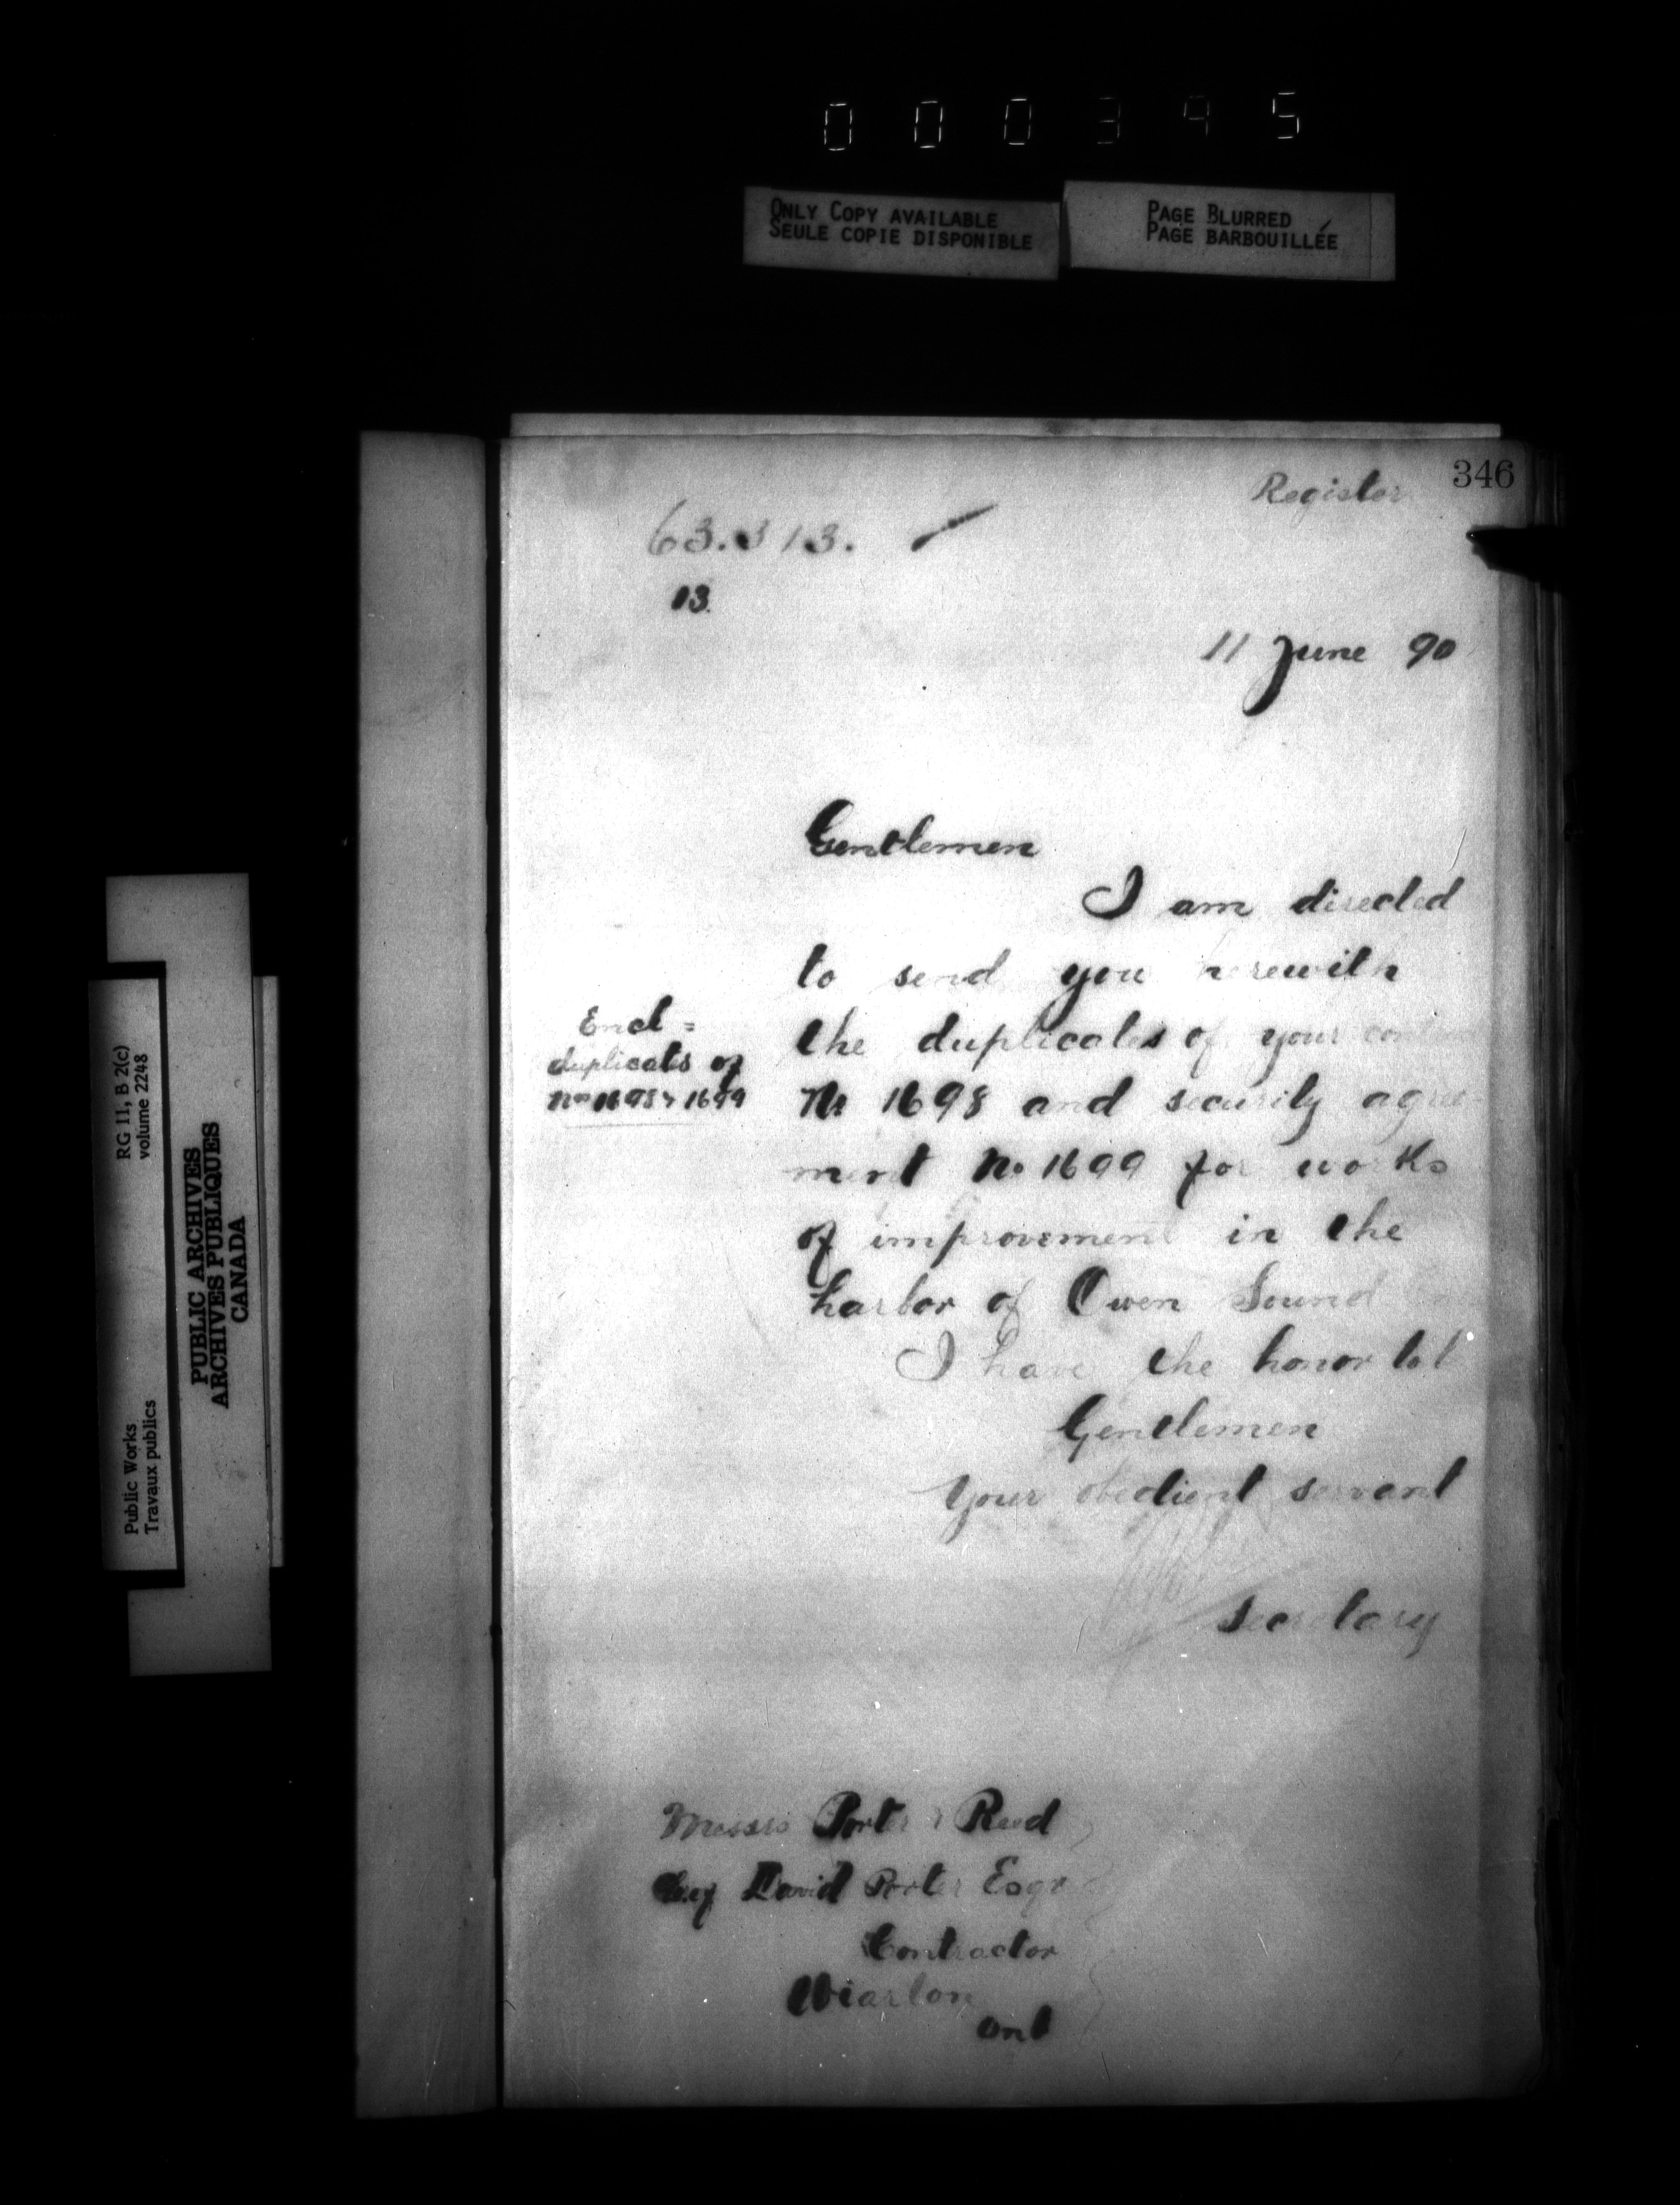 000395
ONLY COPY AVAILABLE
SEULE COPIE DISPONIBLE
PAGE BLURRED
PAGE BARBOUILLÉE
346
Register
63.313.
13.
11 June 90
Gentlemen
I am directed
to send you herewith
the duplicates of your
No 1698 and security agree-
ment No 1699 for works
of improvement in the
harbor of Owen Sound
I have the honor to
Gentlemen
Your obedient servant
Secretary
Encl =
duplicates of
Nos 1698 & 1699
Messrs Porter & Reed
David Porter Esqr
Contractor
Wiarton
Ont
RG 11, B 2(c)
volume 2248
Public Works
Travaux publics
PUBLIC ARCHIVES
ARCHIVES PUBLIQUES
CANADA